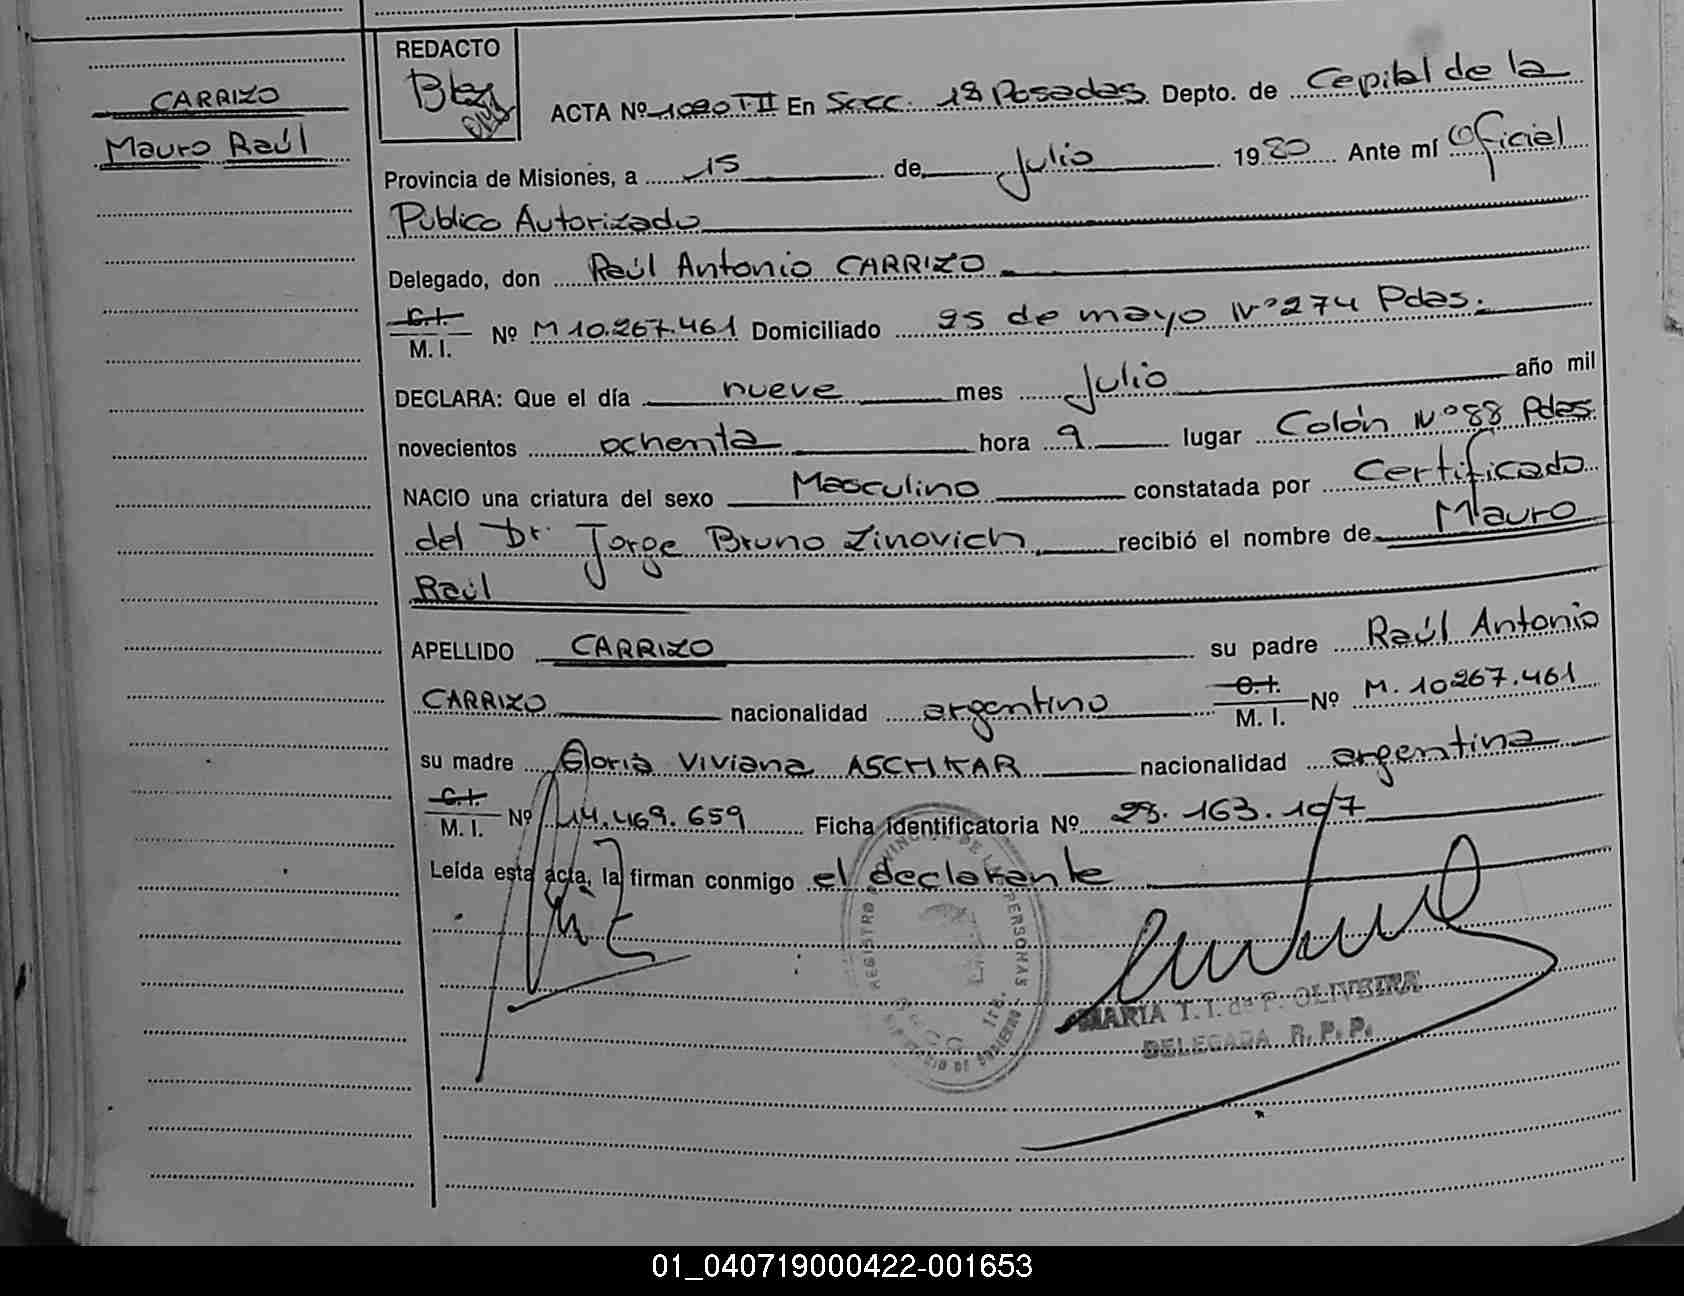 CARRIZO
Mauro Raúl
REDACTO
ACTA Nº 1080 T·II En Secc. 1ª Posadas Depto. de Capital de la
Provincia de Misiones, a 15 de Julio 1980 Ante mí Oficial
Publico Autorizado
Delegado, don Raúl Antonio CARRIZO
C.I.
M. I. Nº M 10.267.461 Domiciliado 25 de mayo Nº 274 Pdas.
DECLARA: Que el día nueve mes Julio año mil
novecientos ochenta hora 9 lugar Colón Nº 88 Pdas.
NACIO una criatura del sexo Masculino constatada por Certificado
del Dr. Jorge Bruno Zinovich recibió el nombre de Mauro
Raúl
APELLIDO CARRIZO su padre Raúl Antonio
CARRIZO nacionalidad argentino C.I. M. I. Nº M. 10267.461
su madre Gloria Viviana ASCHKAR nacionalidad argentina
C.I.
M. I. Nº 14.469.659 Ficha identificatoria Nº 28.163.107
Leída esta acta, la firman conmigo el declarante
REGISTRO PROVINCIAL DE LAS PERSONAS
MARIA T. I. de P. OLIVEIRA
DELEGADA R. P. P.
01_040719000422-001653